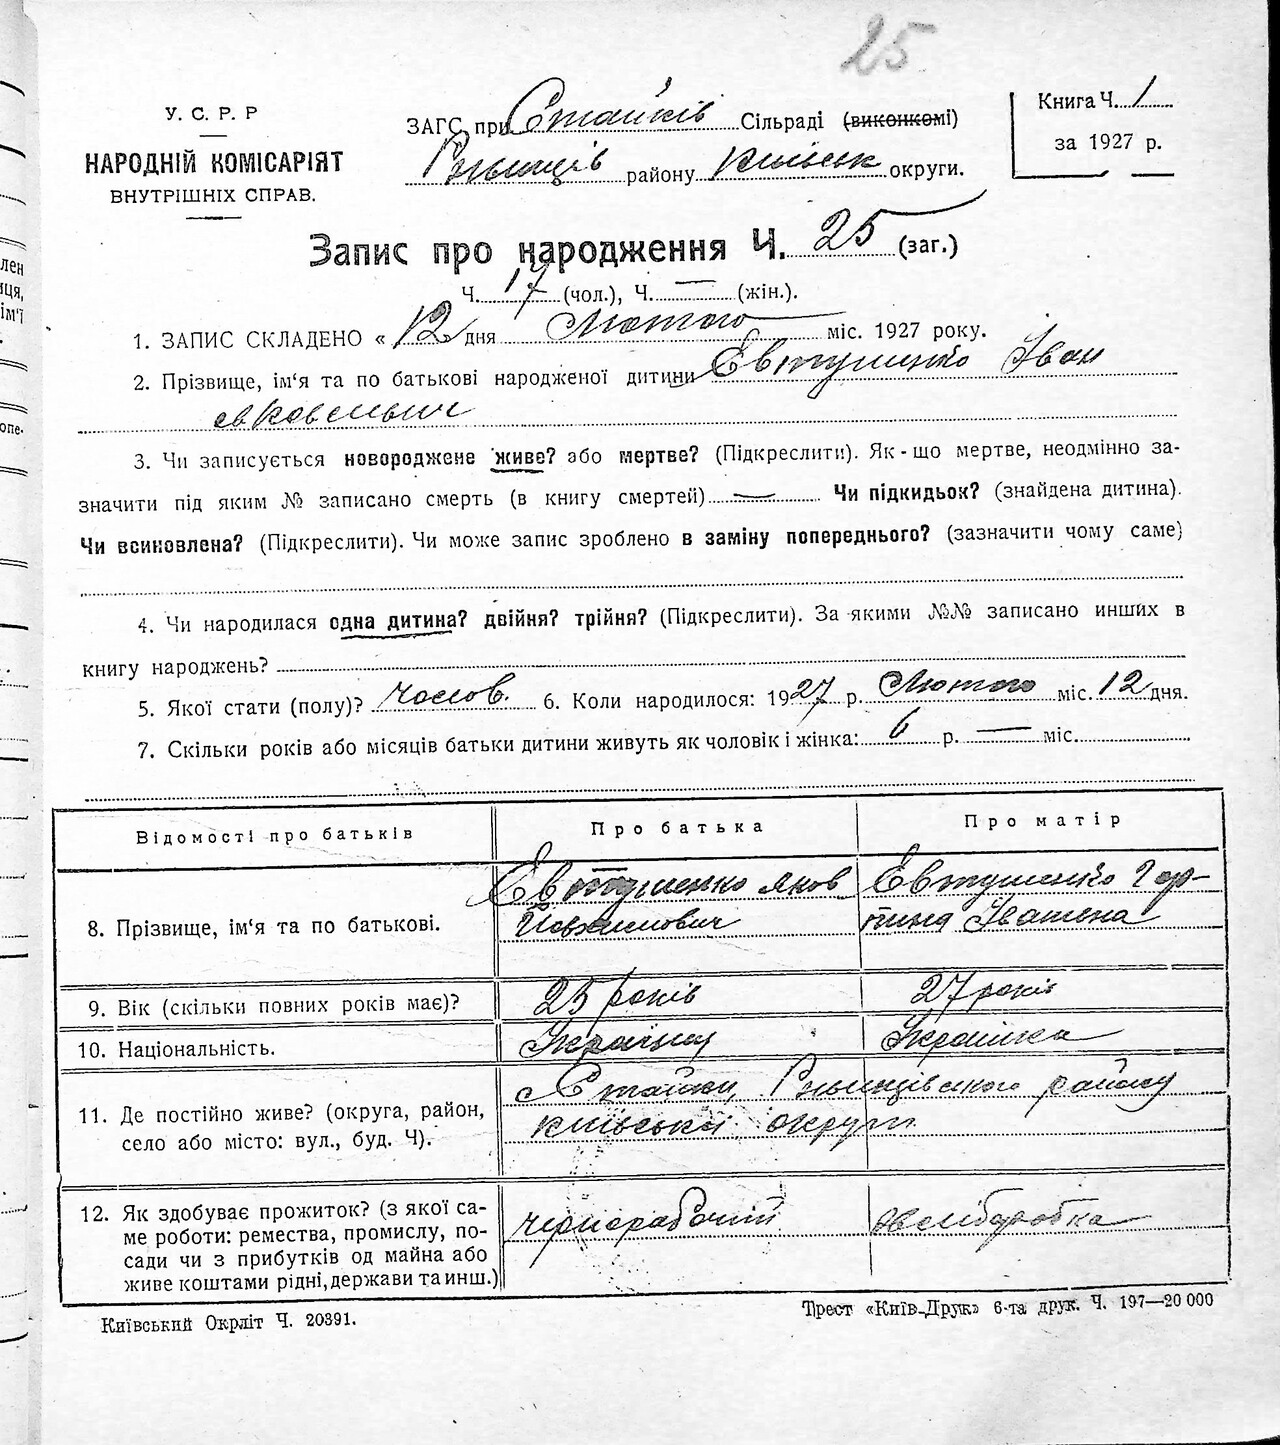 25
У. С. Р. Р
НАРОДНІЙ КОМІСАРІЯТ
ВНУТРІШНІХ СПРАВ.
ЗАГС при Стайків Сільраді (виконкомі)
Ржищів району Київськ округи.
Книга Ч. 1
за 1927 р.
Запис про народження Ч. 25 (заг.)
Ч. 17 (чол.), Ч. — (жін.).
1. ЗАПИС СКЛАДЕНО « 12 дня Лютого міс. 1927 року.
2. Прізвище, ім‘я та по батькові народженої дитини Євтушенко Іван
Яковельвич
3. Чи записується новороджене живе? або мертве? (Підкреслити). Як-що мертве, неодмінно за-
значити під яким № записано смерть (в книгу смертей) — Чи підкидьок? (знайдена дитина).
Чи всиновлена? (Підкреслити). Чи може запис зроблено в заміну попереднього? (зазначити чому саме)
4. Чи народилася одна дитина? двійня? трійня? (Підкреслити). За якими №№ записано инших в
книгу народжень?
5. Якої стати (полу)? чолов. 6. Коли народилося: 1927 р. Лютого міс. 12 дня.
7. Скільки років або місяців батьки дитини живуть як чоловік і жінка: 6 р. — міс.
Відомості про батьків
Про батька
Про матір
8. Прізвище, ім‘я та по батькові.
Євтушенко Яков
Євтушенко Гор-
пина Іватена
9. Вік (скільки повних років має)?
25 років
27 років
10. Національність.
Українец
Українка
11. Де постійно живе? (округа, район,
село або місто: вул., буд. Ч).
Стайки, Ржищівського району
київськи округи
12. Як здобуває прожиток? (з якої са-
ме роботи: ремества, промислу, по-
сади чи з прибутків од майна або
живе коштами рідні, держави та инш.)
чернорабочий
хліборобка
Київський Окрліт Ч. 20391.
Трест «Київ-Друк» 6-та друк. Ч. 197—20 000
лен
иця,
ім‘ї
опе-